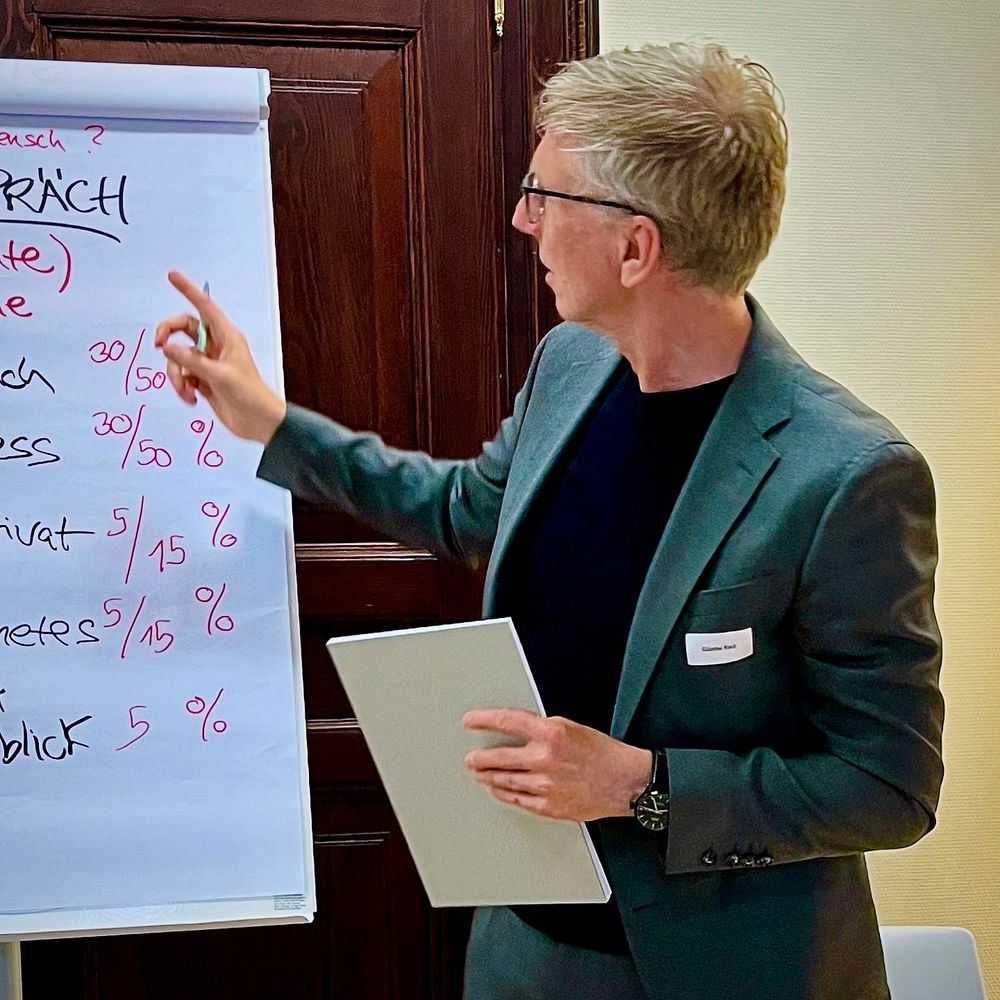 ensch ?
PRÄCH
te)
e
ch 30/50
ess 30/50 %
rivat 5/15 %
netes 5/15 %
blick 5 %